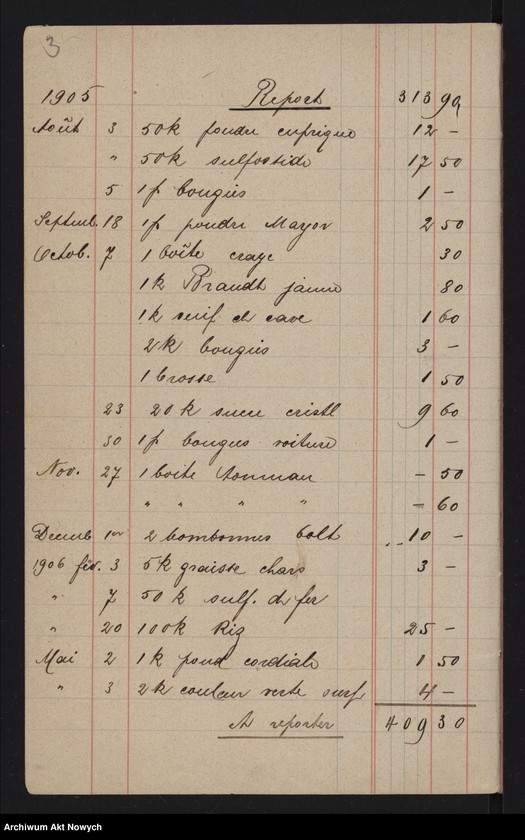 3
1905 Report 313 90
Août 3 50k poudre cuprique 12 -
" 50k sulfostide 17 50
5 1 p bougies 1 -
Septemb. 18 1 p poudre Mayor 2 50
Octob. 7 1 boîte craye 30
1k Brandt jaune 80
1k suif de cave 1 60
2k bougies 3 -
1 brosse 1 50
23 20k sucre cristl 9 60
30 1 p bougies voiture 1 -
Nov. 27 1 boite - 50
" " " " - 60
Decemb 1er 2 bombonnes 10 -
1906 fév. 3 5k graisse chars 3 -
" 7 50 k sulf. de fer
" 20 100k Riz 25 -
Mai 2 1k poud cordiale 1 50
" 3 2k couleur verte surf 4 -
A reporter 409 30
Archiwum Akt Nowych